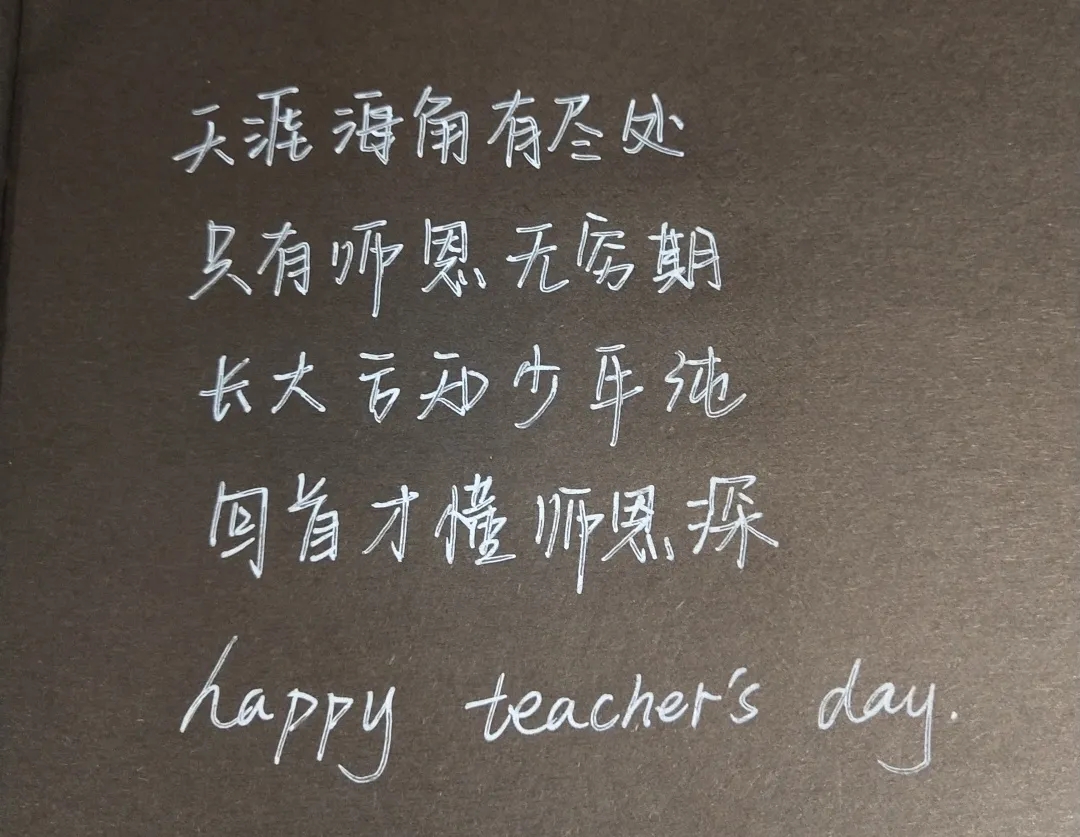 天涯海角有尽处
只有师恩无穷期
长大方知少年纯
回首才懂师恩深
happy teacher's day.